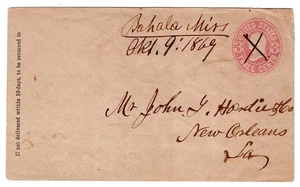 Bahala Miss
Okt. 9. 1869
UNITED STATES
THREE CENTS
Mr John T. Hardie & Co
New Orleans
La
If not delivered within 10 days, to be returned to